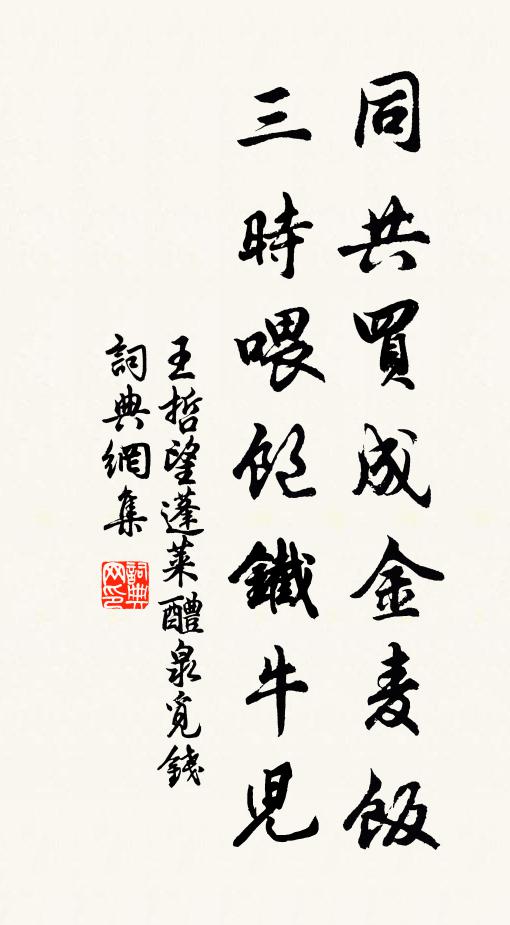 同共買成金麦飯
三時喂飽鐵牛児
王哲望蓬莱醴泉覓錢
詞典網集
詞典网印